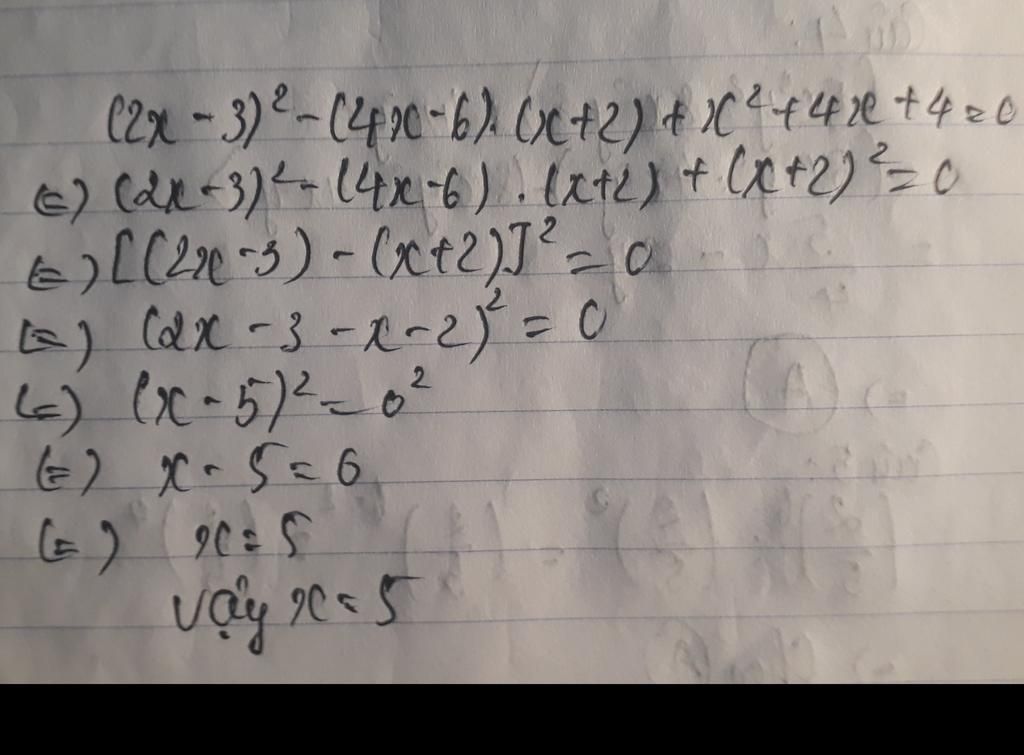 (2x - 3)² - (4x - 6). (x + 2) + x² + 4x + 4 = 0
(=) (2x - 3)² - (4x - 6) . (x + 2) + (x + 2)² = 0
(=) [(2x - 3) - (x + 2)]² = 0
(=) (2x - 3 - x - 2)² = 0
(=) (x - 5)² = 0²
(=) x - 5 = 0
(=) x = 5
Vậy x = 5